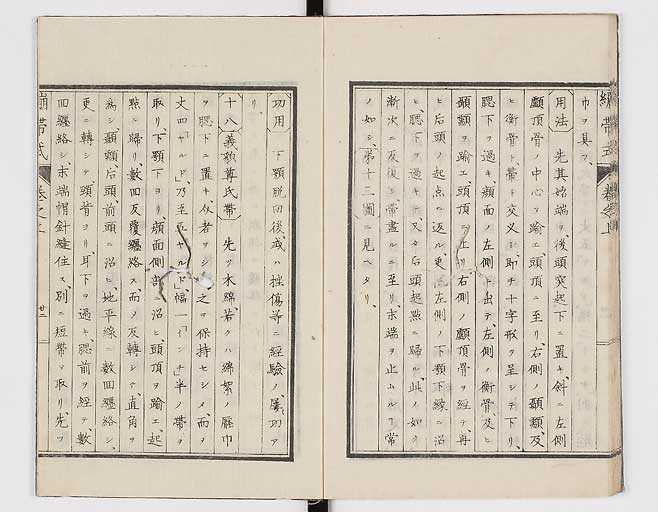 巾ヲ具フ、
用法 先其始端ヲ、後頭突起下ニ置キ、斜ニ左側
顱頂骨ノ中心ヲ踰エ、頭頂ニ至リ、右側ノ顳顬及
ヒ衡骨ト、帶ヲ交乂シ、即チ十字形ヲ呈シテ下リ、
腮下ヲ過キ、顔面ノ左側ニ出テ、左側ノ衡骨及ヒ
顳顬ヲ踰エ、頭頂ニ上リ、右側ノ顱頂骨ヲ經テ、再
ヒ后頭ノ起点ニ返ル、更ニ左側ノ下顎下縁ニ沿
ヒ、腮下ヲ過キテ、又タ后頭起點ニ歸ル、此ノ如ク
漸次ニ反復シ、帶盡ルニ至リ、末端ヲ止ムル丁常
ノ如シ、第十三圖ニ見ヘタリ、
功用 下顎脱臼後、或ハ挫傷等ニ經驗ノ屢功ア
リ、
十八 義敬尊氏帶 先ツ木綿、若クハ綿絮ノ壓巾
ヲ腮下ニ置キ、 者ヲシテ、之ヲ保持セシメ、而ヲ
丈四「ヤルド」乃至五「ヤルド」幅一「インチ」半ノ帶ヲ
取リ、下顎下ヨリ、顔面側部ニ沿ヒ、頭頂ヲ踰エ、起
點ニ歸リ、數回反覆纏絡ス、而ノ反轉シテ、直角ヲ
爲シ、顳顬、后頭、前頭ニ沿ヒ、地平線ニ數回纏絡シ、
更ニ轉シテ、頭背ヨリ、耳下ヲ過キ、腮前ヲ經テ、數
回纏絡シ、末端帽針縫住ス、別ニ短帶ヲ取リ、先ツ
繃帶式 卷之上 廿二